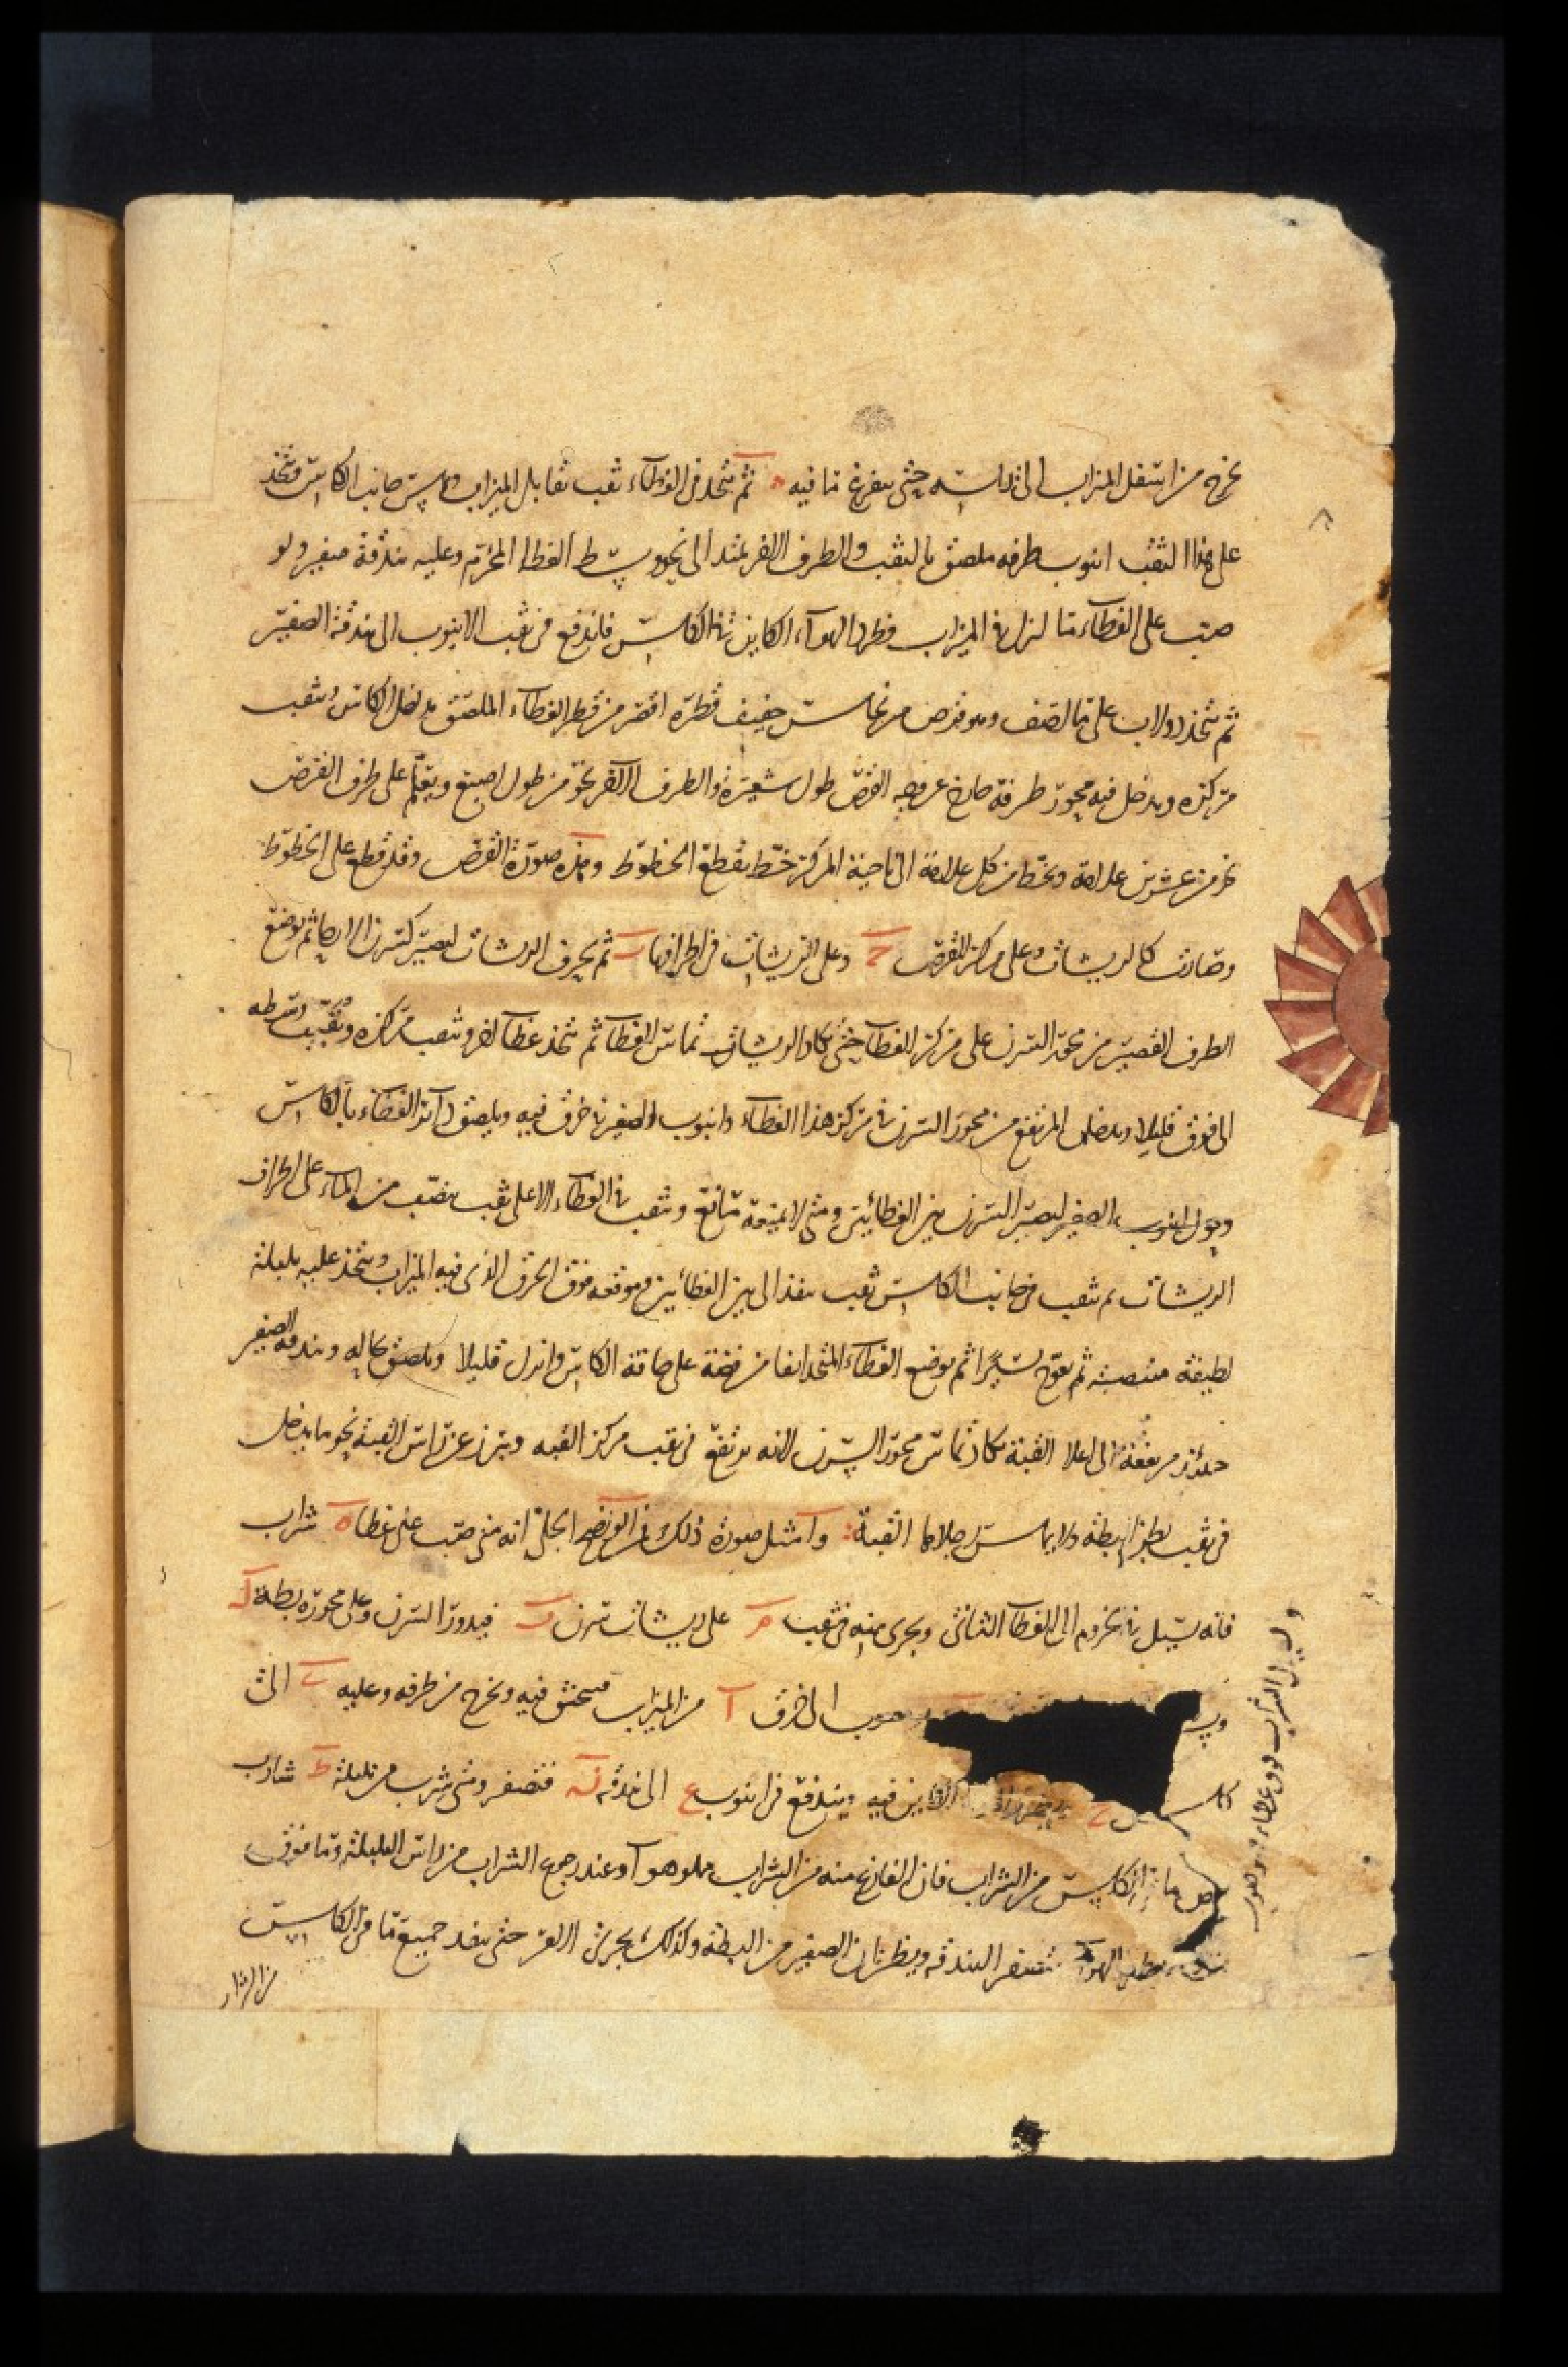 يخرج من اسفل الميزاب الى راسه حتى يفرغ ما فيه ثم يتخذ في الغطاء ثقب يقابل الميزاب ويماس جانب الكاس ويتخذ
على هذا الثقب انبوب طرفه ملصق بالثقب والطرف الاخر يمتد الى نحو وسط الغطا المخرم وعليه بندقة صفير ولو
صب على الغطاء ما لنزل في الميزاب وطرد الهواء الكاين في الكاس فاندفع في ثقب الانبوب الى بندقة الصفير
ثم يتخذ دولاب على ما اصف وهو قرص من نحاس خفيف قطره اقصر من قطر الغطاء الملصق بداخل الكاس ويثقب
مركزه ويدخل فيه محور طرفه خارج عن وجه القرص طول شعيرة والطرف الاخر نحو من طول اصبع ويعلم على طرف القرص
نحو من عشرين علامة ويخط من كل علامة الى ناحية المركز خط يقطع الخطوط وهذه صورة القرص وقد قطع على الخطوط
وصارت كالريشات وعلى مركز القرص ح وعلى الريشات في اطرافها ثم يحرف الريشات ليصير كسرن الارحا ثم يوضع
الطرف القصير من محور السرن على مركز الغطاء حتى يكاد الريشات تماس الغطا ثم يتخذ غطا اخر ويثقب مركزه ويقبب وسطه
الى فوق قليلا ويدخل المرتفع من محور السرن في مركز هذا الغطاء وانبوب الصفير في خرق فيه ويلصق دائر الغطاء بالكاس
وحول انبوب الصفير ليصير السرن بين الغطائين ومتى لا يمنعه مانع ويثقب في الغطاء الاعلى ثقب ينصب منه الماء على اطراف
الريشات ثم يثقب في جانب الكاس ثقب ينفذ الى بين الغطائين وموقعه فوق الخرق الذي فيه الميزاب ويتخذ عليه بلبلة
لطيفة منتصبة ثم يعوج يسيرا ثم يوضع الغطاء المتخذ انفا من فضة على حافة الكاس وانزل قليلا ويلصق بحاله وبندقة الصفير
حينئذ مرتفعة الى اعلا القبة يكاد يماس محور السرن لانه يرتفع في ثقب مركز القبه ويبرز عن راس القبة نحو ما يدخل
في ثقب بطن البطه ولا يماس رجلاها القبة وامثل صورة ذلك فمن الواضح الجلي انه متى صب على غطا ه شراب
فانه يسيل في تخرم الى الغطا الثاني ويجري منه في ثقب م على ريشات سرن ب فيدور السرن وعلى محوره بطة ك
الى خرق آ من الميزاب فيحتقن فيه ويخرج من طرفه وعليه الى
كاس ح الكاين فيه ويندفع في انبوب ع الى بندقه ف فتصفر ومتى شرب من بلبلة ط شارب
ما في الكاس من الشراب فان الفارغ منه من الشراب مملو هوا وعند رجوع الشراب من راس البلبلة وما فوق
يطرد الهواء فتصفر البندقه ويظن ان الصفير من البطة وكذلك يجري الامر حتى ينفد جميع ما في الكاس
من الشراب